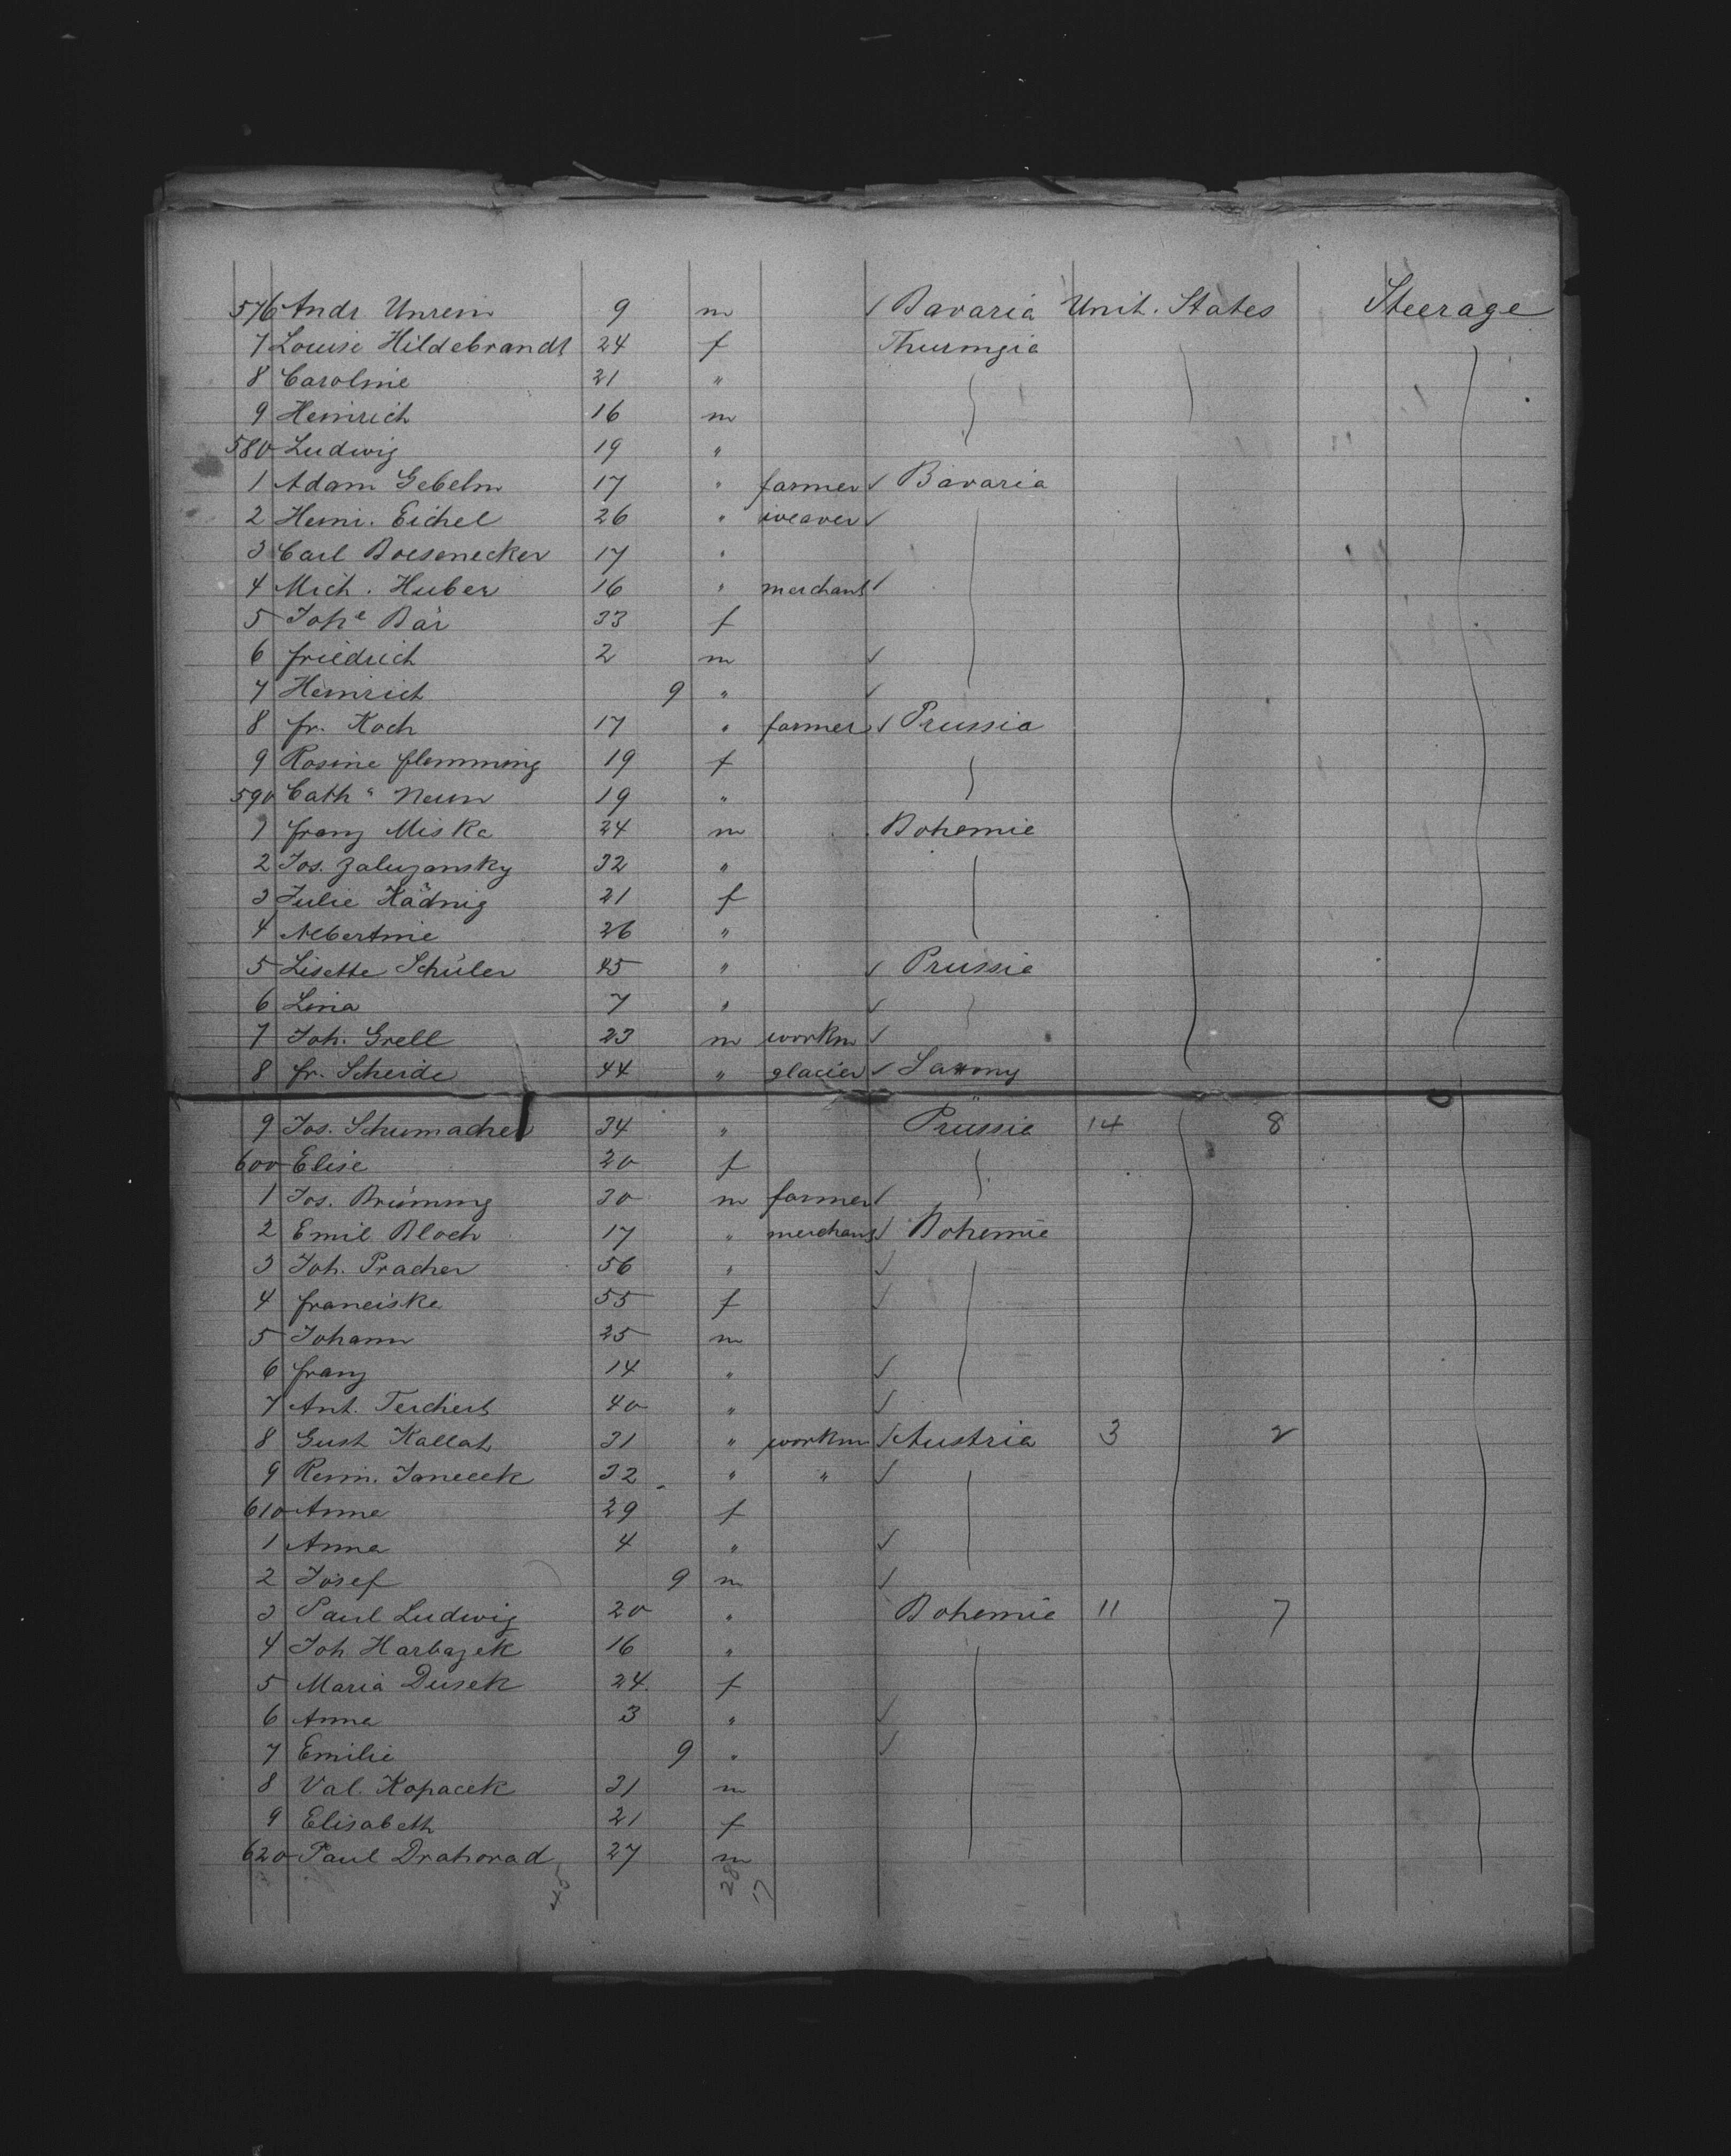 576 Andr. Unrein 9 m ✓ Bavaria Unit. States Steerage
7 Louise Hildebrandt 24 f Thuringia
8 Caroline 21 "
9 Heinrich 16 m
580 Ludwig 19 "
1 Adam Gebelm 17 " farmer ✓ Bavaria
2 Heinr. Eichel 26 " weaver ✓
3 Carl Boesenecker 17 "
4 Mich. Huber 16 " merchant ✓
5 Joh.e Bär 33 f
6 Friedrich 2 m ✓
7 Heinrich 9 " ✓
8 Fr. Koch 17 " farmer ✓ Prussia
9 Rosine Flemming 19 f
590 Cath.a Neun 19 "
1 Franz Miska 24 m Bohemia
2 Jos. Zaluzansky 32 "
3 Julie Kädnig 21 f
4 Albertine 26 "
5 Lisette Schüler 45 " ✓ Prussia
6 Lina 7 " ✓
7 Joh. Grell 23 m workm ✓
8 Fr. Scheide 44 " glacier ✓ Saxony
9 Jos. Schumacher 34 " Prussia 14 8
600 Elise 20 f
1 Jos. Brüning 30 m farmer ✓
2 Emil Bloch 17 " merchant ✓ Bohemia
3 Joh. Pracher 56 " ✓
4 Franciska 55 f ✓
5 Johann 25 m
6 Franz 14 " ✓
7 Ant. Teichert 40 " ✓
8 Gust Kallah 31 " workm ✓ Austria 3 2
9 Janecek 32 " " ✓
610 Anna 29 f
1 Anna 4 " ✓
2 Josef 9 m ✓
3 Paul Ludwig 20 " Bohemia 11 7
4 Joh Harbazek 16 "
5 Maria Dusek 24 f
6 Anna 3 " ✓
7 Emilie 9 " ✓
8 Val. Kopacek 31 m
9 Elisabeth 21 f
620 Paul Drahorad 27 m
45 28 17